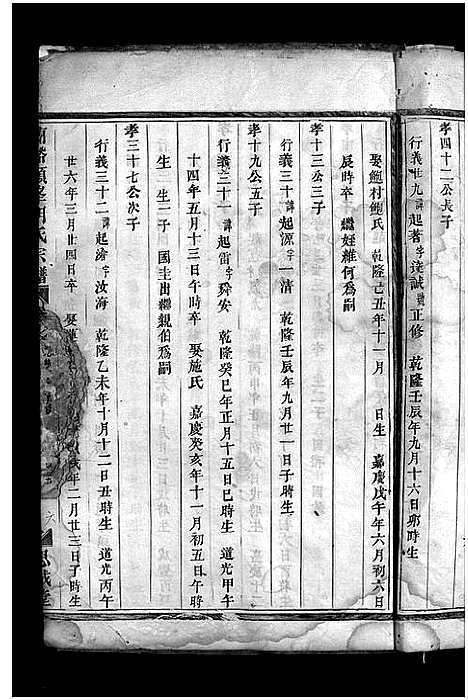 孝四十二公長子
行義廿九諱起著字達誠號正修 乾隆壬辰年九月十六日卯時生
娶鮑村鮑氏 乾隆己丑年十一月 日生 嘉慶戊午年六月初六日
辰時卒 繼姪維何爲嗣
孝十三公三子
行義三十諱起源字一清 乾隆壬辰年九月廿一日子時生
孝十九公五子
行義三十一諱起雷字舜安 乾隆癸巳年正月十五日巳時生 道光甲午
十四年五月十三日午時卒 娶施氏 嘉慶癸亥年十一月初五日午時
生 生一子 國圭出繼親伯爲嗣
孝三十七公次子
行義三十二諱起濬字汝海 乾隆乙未年十月十二日丑時生 道光丙午
廿六年三月廿四日卒 娶 氏 年二月廿三日子時生
氏宗譜
六
思成堂